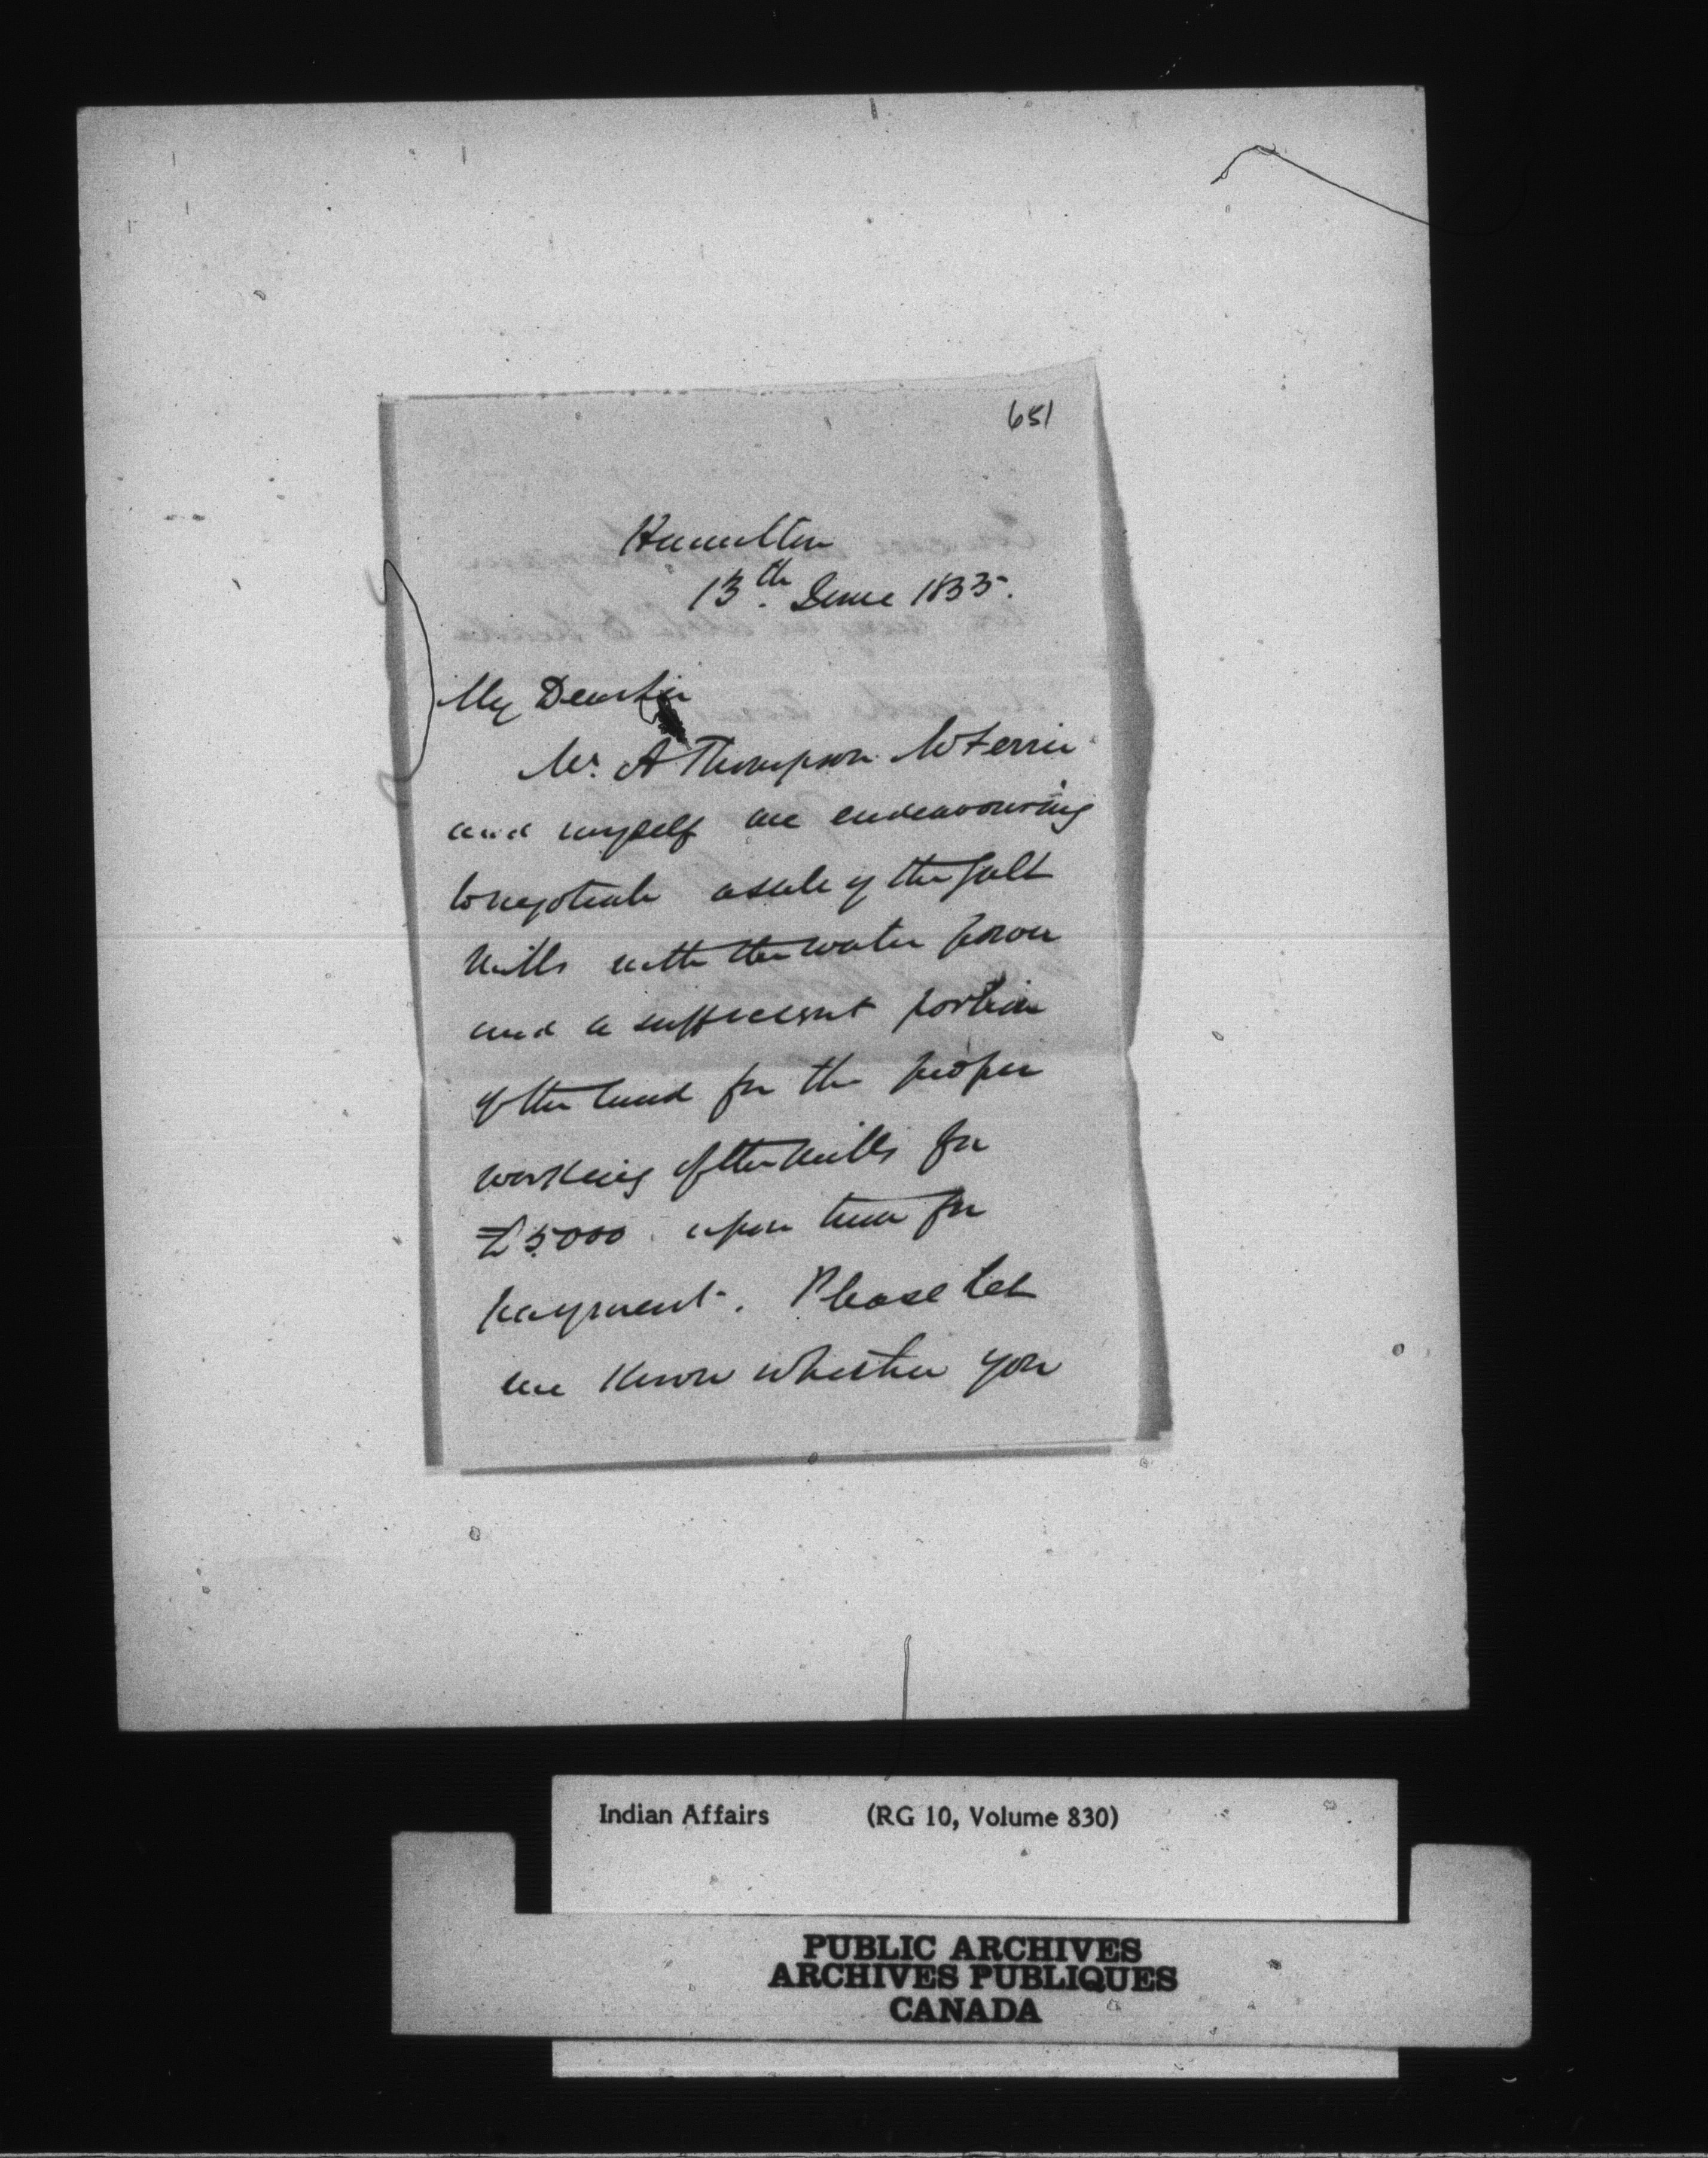 651
Hamilton
13th. June 1835.
My Dear Sir
Mr. A Thompson Mr Ferrie
and myself are endeavouring
to negotiate a sale of the Galt
Mills with the water power
and a sufficient portion
of the land for the proper
working of the mills for
£5000. upon time for
payment. Please let
me know whether you
Indian Affairs (RG 10, Volume 830)
PUBLIC ARCHIVES
ARCHIVES PUBLIQUES
CANADA